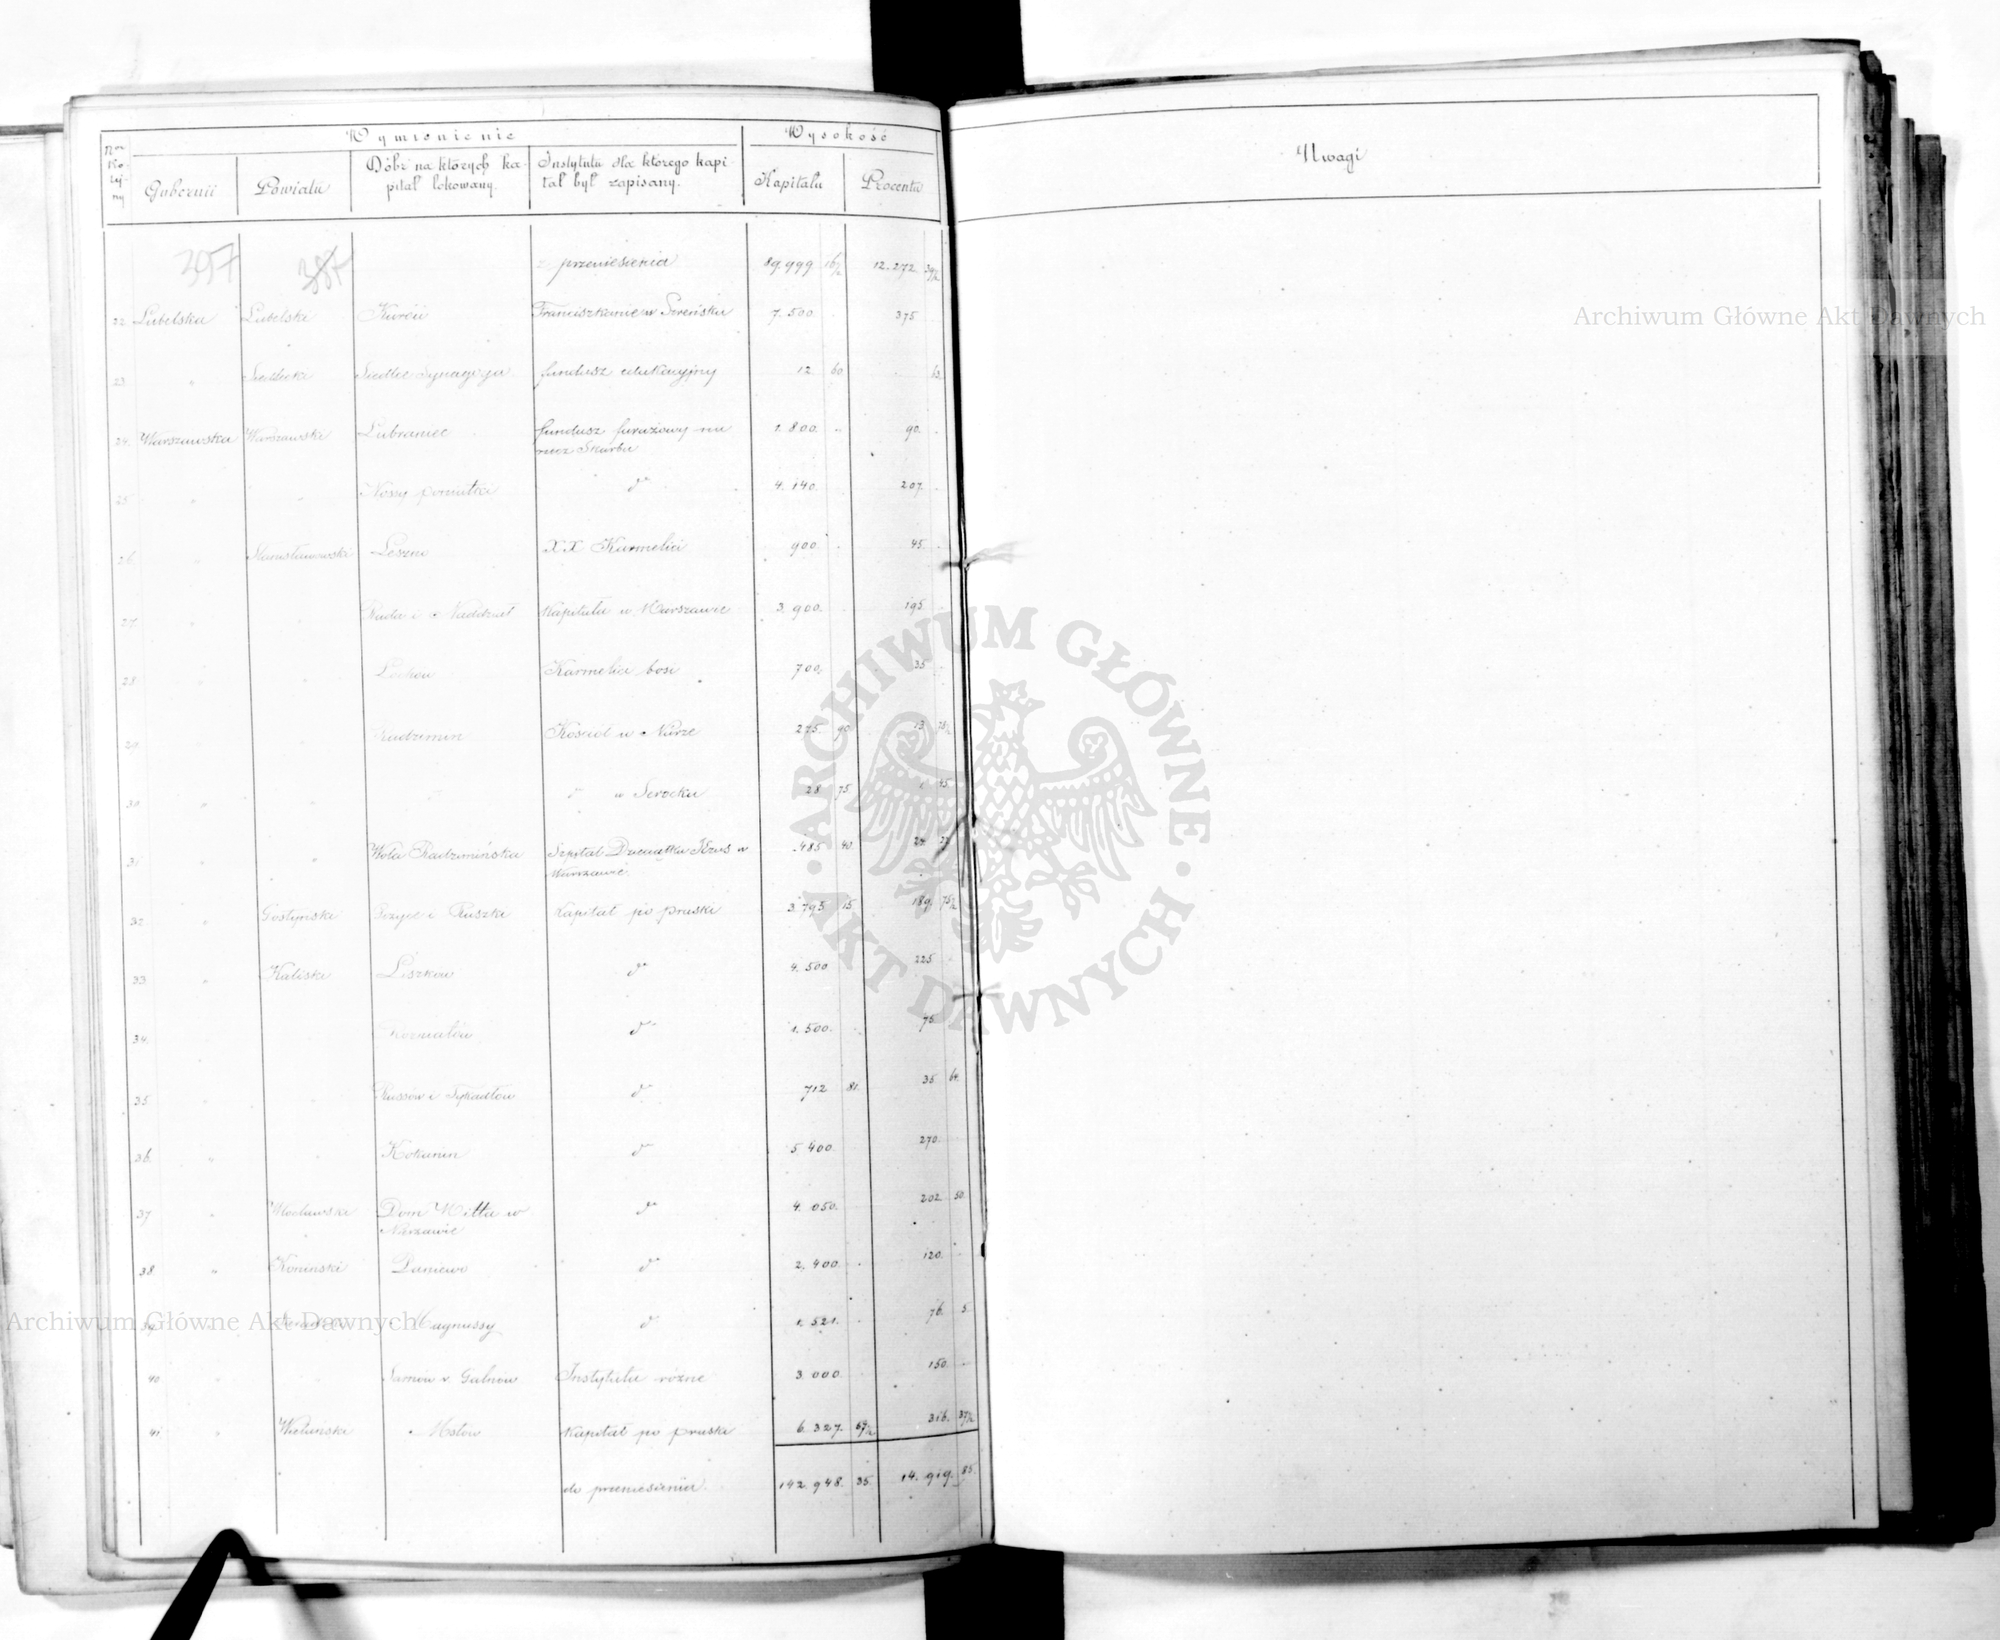 Wymienienie
Wysokość
Uwagi
Nr Kolejny
Gubernii
Powiatu
Dóbr na których kapitał lokowany.
Instytutu dla którego kapitał był zapisany.
Kapitału
Procentu
397 387
z przeniesienia 89.999 16½ 12.272 39½
22. Lubelska Lubelski Kurów Franciszkanie w 7.500 375
23. " Siedlecki Siedlce Synagoga fundusz edukacyjny 12 60 . 63
24. Warszawska Warszawski Lubraniec fundusz furażowy na
rzecz Skarbu 1.800. 90.
25 " " Nossy poniatki d° 4.140. 207.
26. Stanisławowski Leszno XX Karmelici 900. 45.
27. Ruda i Kapituła w Warszawie 3.900. 195.
28. Łochów Karmelici bosi 700. 35
29. Radzimin Kościół w Nurze 275 90 13 79½
30 " " d° w Serocku 28 75 1 45
31. " Wola Radzimińska Szpital Dzieciątka Jezus w
Warszawie. 485 40 24 27
32. " Gostyński i Ruszki Kapitał po pruski 3.795 15 189 75½
33. " Kaliski Liszków d° 4.500 225.
34. d° 1.500. 75.
35 Russów i Tykadłów d° 712 81. 35 64
36. " Kokanin d° 5 400. 270.
37 " Włocławski Dom Witta w
Warszawie d° 4.050. 202 50
38. " Koniński d° 2.400. 120.
39. Magnussy d° 1.521. 76. 5
40 " Sarnów v. Galnów Instytuta różne 3 000. 150.
41 " Wieluński Mstów Kapitał po pruski 6.327. 67½ 316. 37½
do przeniesienia. 142.948. 35. 14.919. 85.
Archiwum Główne Akt Dawnych
Archiwum Główne Akt Dawnych
ARCHIWUM GŁÓWNE · AKT DAWNYCH ·